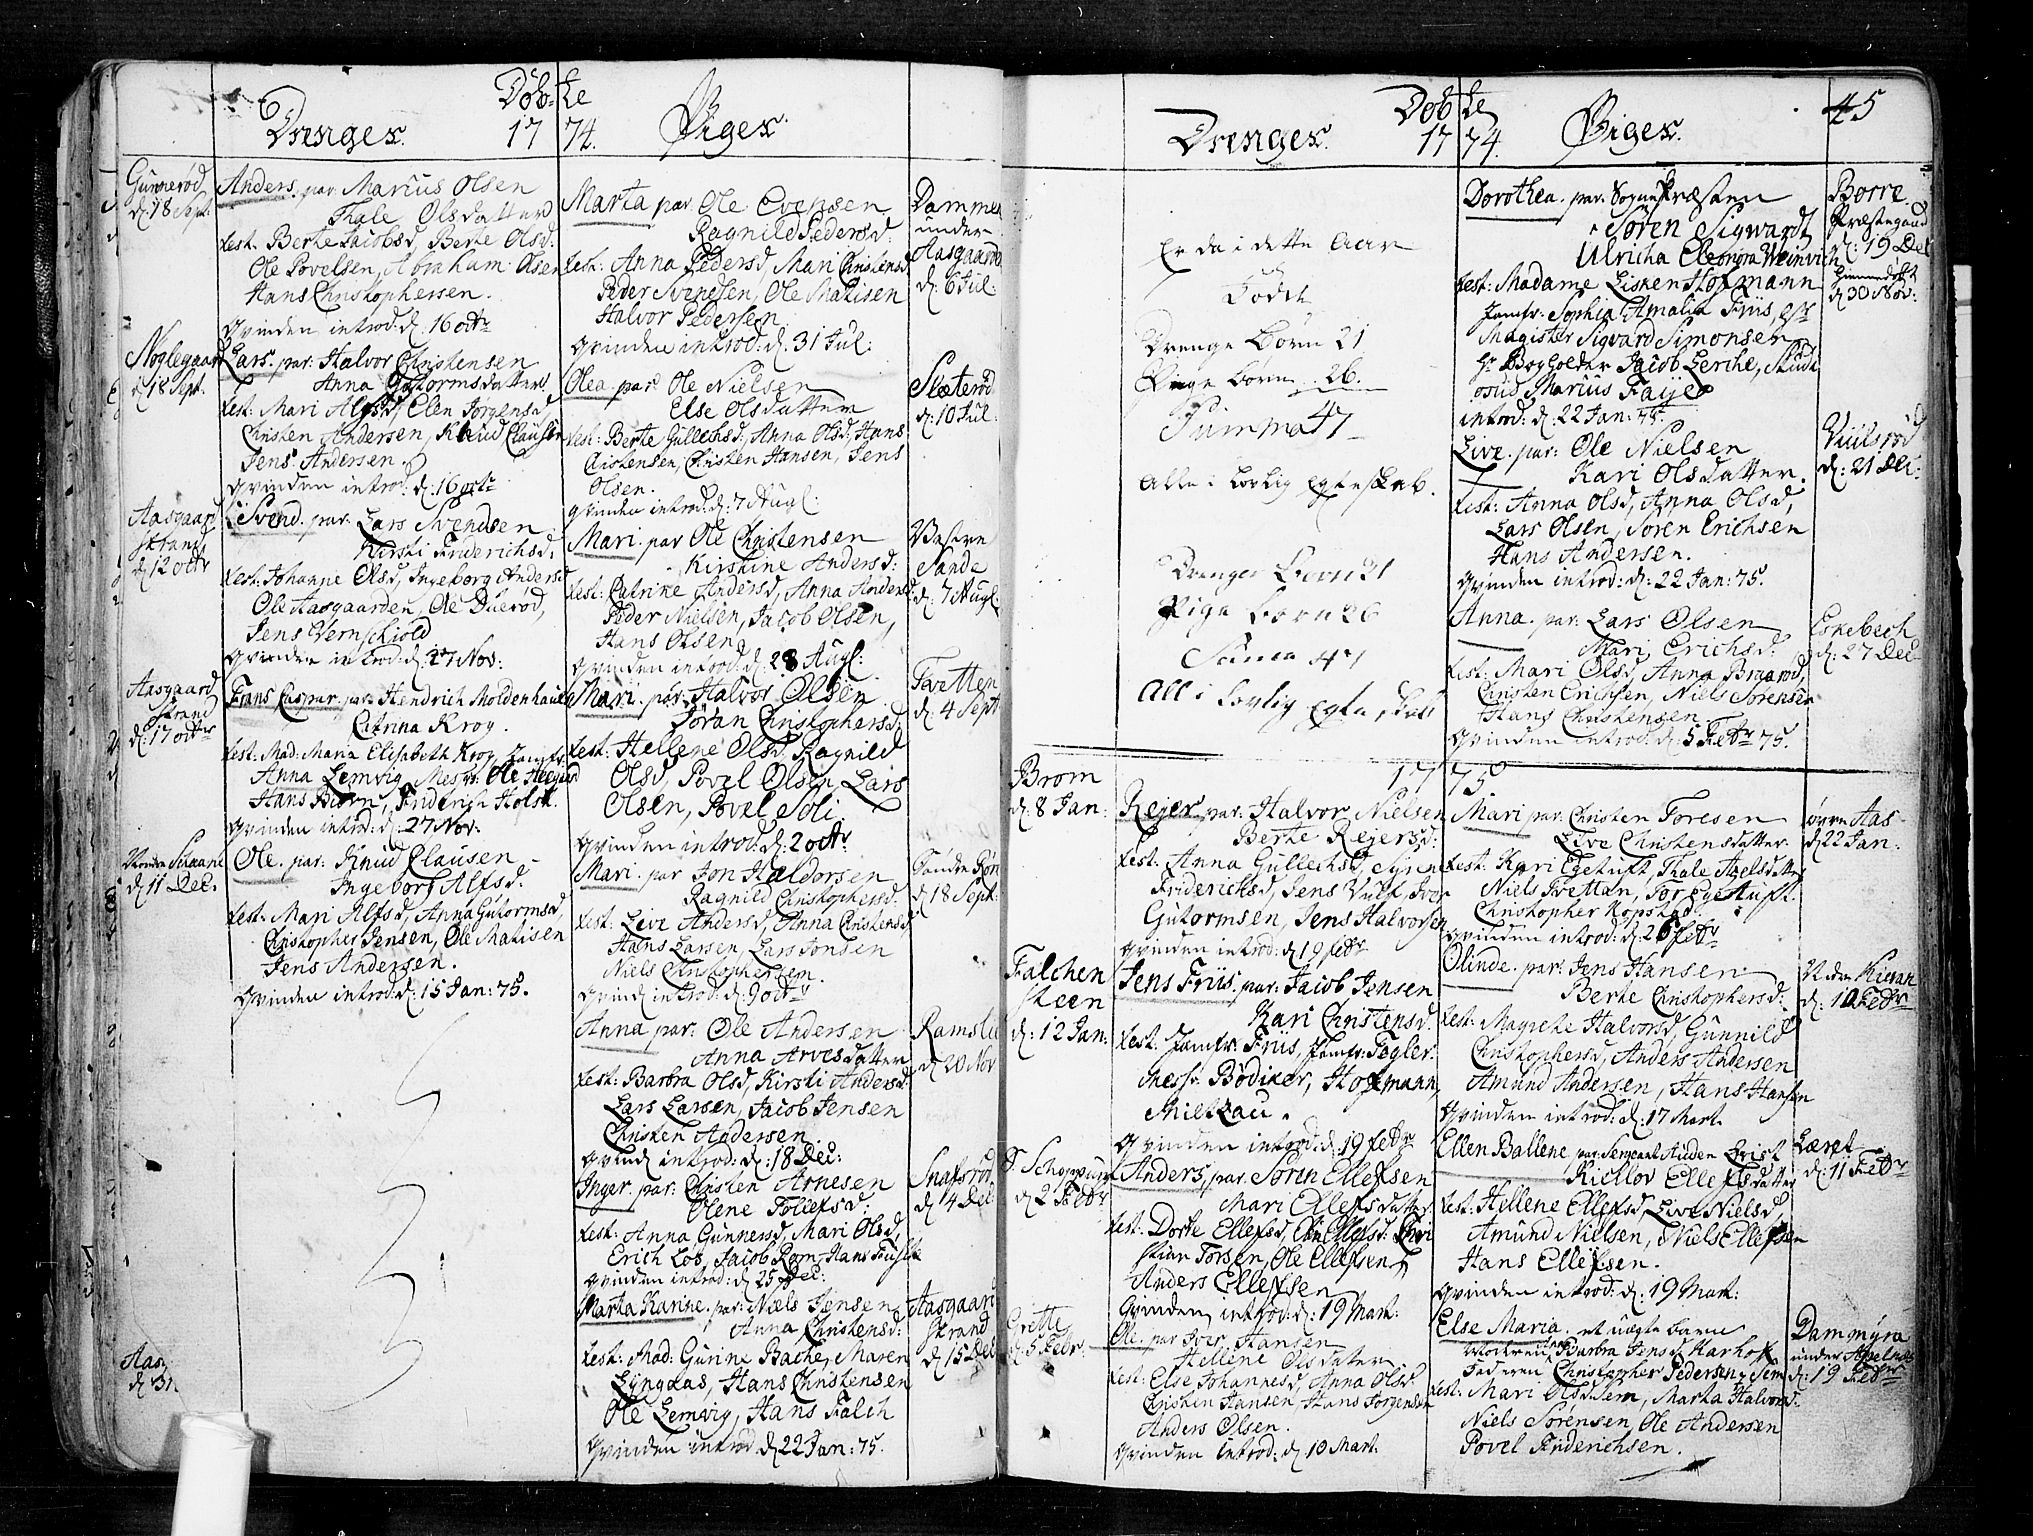 Døb= te
Drenges. 17 74. Piges.
Gunnerød
d: 18 Sept:
Anders. par: Marius Olsen
Thale Olsdatter
test: Berte Jacobsd, Berte Olsd.
Ole Povelsen, Abraham Olsen
Hans Christophersen.
Qvinden introd: d: 16 octr
Noglegaard
d: 18 Sept.
Lars. par: Halvor Christensen
Anna Gutormsdatter
test: Mari Alfsd, Elen Jørgensd,
Christen Andersen, Knud Clausen
Jens Andersen.
Qvinden introd: d: 16 octr
Aasgaard
strand
d: 12 octr
Svend. par: Lars Svendsen
Kirsti Friderichsd.
test: Johanne Olsd, Ingeborg Andersd
Ole Aasgaarden, Ole Duerød,
Jens Vernschiold
Qvinden introd: d: 27 Nov:
Aasgaard
strand
d: 17 octr
Frans Caspar. par: Hendrich Moldenhauer
Catrina Krog.
test: Mad: Maria Elisabeth Krog, Jomfr:
Anna Lemvig, Mesr: Ole Heegaard
Hans Biørn, Friderich Holst.
Qvinden introd: d: 27 Nov.
d: 11 Dec.
Ole. par: Knud Clausen
Ingebor Alfsd.
test: Mari Alfsd, Anna Gutormsd,
Christopher Jensen, Ole Matisen
Jens Andersen.
Qvinden introd: d: 15 Jan: 75.
Aasg
d: 31
Marta par Ole Evensen
Ragnild Pedersd:
test: Anna Pedersd, Mari Christensd
Peder Svendsen, Ole Matisen
Halvor Pedersen
Qvinden introd: d. 31 Jul:
Dammen
under
Aasgaard
d: 6 Jul:
Olea. par Ole Nielsen
Else Olsdatter
test: Berte Gullechsd, Anna Olsd, Hans
Christensen, Christen Hansen, Jens
Olsen.
Qvinden introd: d: 7 Augl:
Sleterød
d: 10 Jul:
Mari. par Ole Christensen
Kirstine Andersd:
test: Catrine Andersd, Anna Andersd:
Peder Nielsen, Jacob Olsen,
Hans Olsen
Qvinden introd: d. 28 Augl:
Vestre
Sande
d: 7 Augl:
Mari. par: Halvor Olsen
Jøran Christophersd.
test: Hellene Olsd, Ragnild
Olsd, Povel Olsen, Lars
Olsen, Povel Soli
Qvinden introd: d: 2 octr
Tvetten
d: 4 Sept
Mari. par Jon Haldorsen
Ragnild Christophersd.
test: Live Andersd, Anna Christensd
Hans Larsen, Lars Jonsen
Niels Christophersen
Qvind introd: d: 9 octr
Søndre Røn
d: 18 Sept:
Anna par: Ole Andersen
Anna Arvesdatter
test: Barbra Olsd, Kirsti Andersd:
Lars Larsen, Jacob Jensen
Christen Andersen
Qvind introd: d: 18 Dec:
Ramslie
d: 20 Nov
Inger. par: Christen Arnesen
Olene Tollefsd:
test: Anna Gunnersd, Mari Olsd,
Erich Lob, Jacob Rom, Hans
Qvinden introd: d 25 Dec:
Snafsrød
d: 4 Dec
Marta Karine. par: Niels Jensen
Anna Christensd:
test: Mad: Gurine Bache, Maren
Lyngaas, Hans Christensen
Ole Lemvig, Hans Falch
Qvinden introd d: 22 Jan: 75.
Aasgaard
strand
d: 15 Dec
Døb te 45
Drenges. 17 74. Piges.
Er da i dette Aar
Født
Drenge Børn 21
Pige Børn 26.
Summa 47
Alle i lovlig Egteskab.
Drenge Børn 21
Pige Børn 26
Suma 47
All i lovlig Egteskab
Dorothea. par: Sogne Præsten
Søren Sigwardt
Ulricha Eleonora Weinvich
test: Madame Lisken Hofmann
Jomfr: Sophia Amalia Friis,
Magister Sigvard Simonsen
Hr Bogholder Jacob Lerche, Stud
Marius Faÿe
introd: d: 22 Jan: 75.
Borre
Præstegaard
d: 19 Dec
Hiemmedøbt
d: 30 Nov:
Live. par: Ole Nielsen
Kari Olsdatter.
test: Anna Olsd, Anna Olsd,
Lars Olsen, Søren Erichsen
Hans Andersen.
Qvinden introd: d: 22 Jan: 75.
Viulsrød
d: 21 Dec:
Anna. par: Lars Olsen
Mari Erichsd:
test: Mari Olsd, Anna Braarød,
Christen Erichsen, Niels Sørensen
Hans Christensen
Qvinden introd: d. 5 Febr 75.
Eskebech
d: 27 Dec
17 75
Brom
d: 8 Jan:
Rejer. par: Halvor Nielsen
Berte Rejersd:
test: Anna Gullechsd, Siren
Friderichsd, Jens Vulf, Iver
Gutormsen, Jens Halvorsen
Qvinden introd: d 19 febr
Falchen
steen
d: 12 Jan:
Jens Friis. par: Jacob Jensen
Kari Christensd.
test: Jomfr: Friis, Jomfr: Fogler
Messr: Bødiker, Hofmann,
Miltzau.
Qvinden introd: d: 19 febr
d: 2 Febr
Anders, par: Søren Ellefsen
Mari Ellefsdatter
test: Dorte Ellefsd, Ellefsd: Chri
stian Torsen, Ole Ellefsen,
Anders Ellefsen
Qvinden introd: d: 19 Mart:
Grette
d: 5 Febr.
Ole. par Iver Hansen
Hellene Olsdatter
test: Else Johannesd, Anna Olsd
Christen Hansen, Hans Jørgensen
Anders Olsen.
Qvinden introd: d 10 Mart.
Mari par: Christen Toresen
Live Christensdatter
test: Kari Egetuft, Thale Axelsdatter
Niels Tvettan, Tor Egetuft.
Christopher Kopstad
Qvinden introd: d. 26 febr
øvre Aas
d 22 Jan:
Olinde. par: Jens Hansen
Berte Christophersd:
test: Magrete Halvorsd, Gunnild
Christophersd, Anders Andersen
Amund Andersen, Hans Hansen
Qvinden introd: d: 17 Mart.
d: 10 Febr
Ellen Ballene, par: Sergeant Auden Qvist
Kiellov Ellefsdatter
test: Hellene Ellefsd, Live Nielsd,
Amund Nielsen, Niels Ellefsen
Hans Ellefsen.
Qvinden introd: d. 19 Mart:
Læret
d: 11 Febr
Else Maria. et uægte barn
Moderen: Barbra Jensd Karhof
Faderen Christopher Pedersen Sem
test: Mari Olsd Sem, Marta Halvorsd.
Niels Sørensen, Ole Andersen
Povel Friderichsen.
Dammyra
under Apelnæs
d: 19 Febr